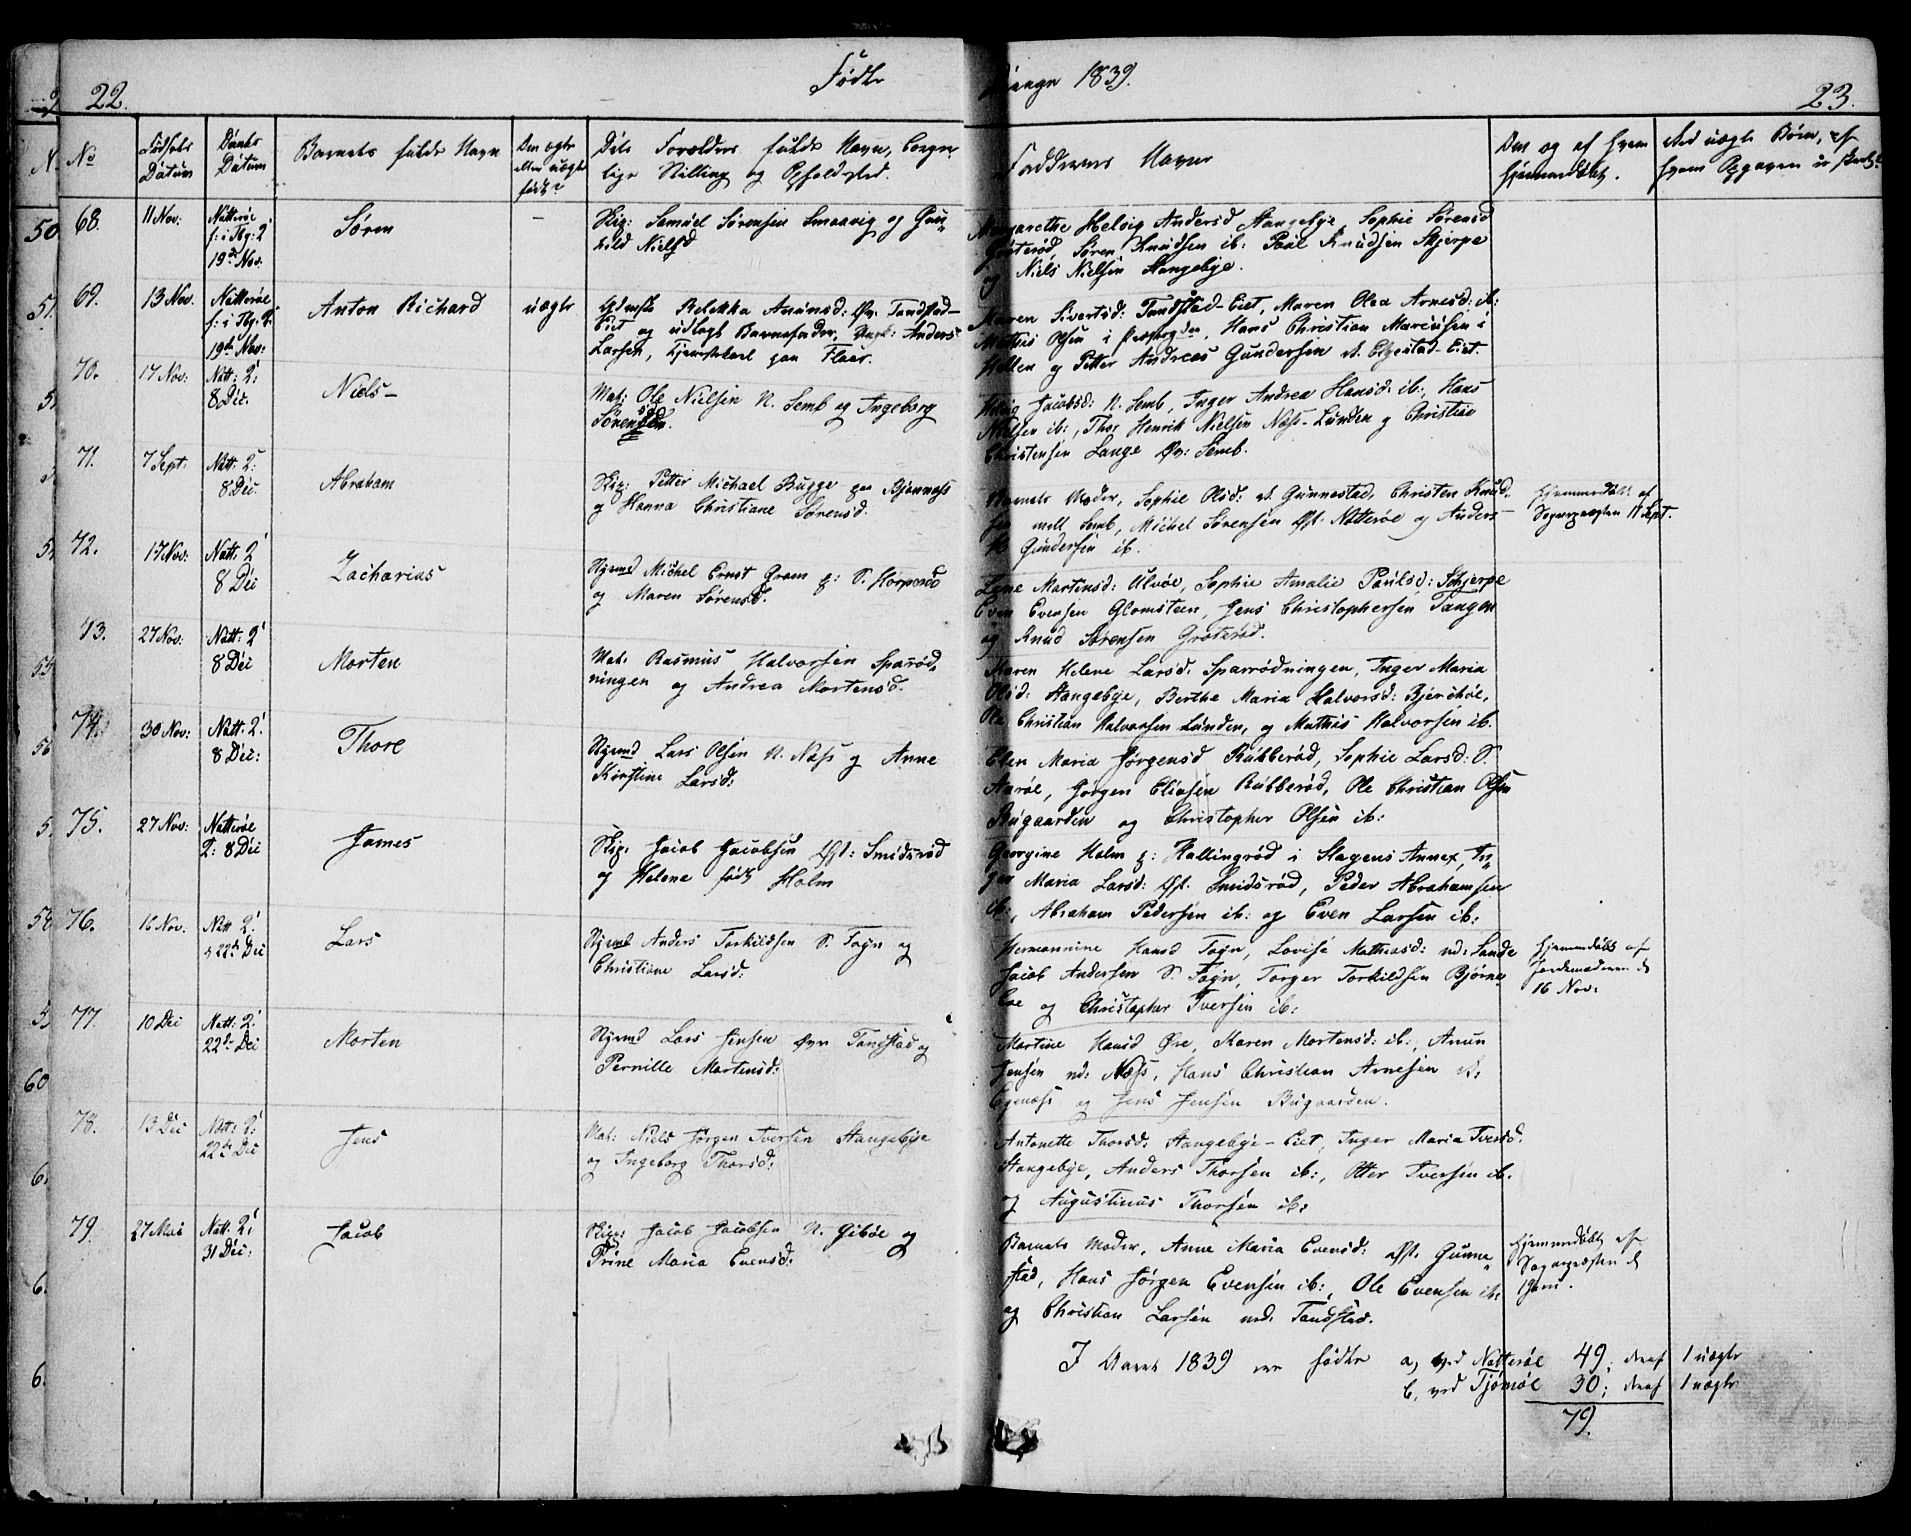 22.
Fødte
Drenge 1839.
23.
No
Fødsels Datum
Daabs Datum
Barnets fulde Navn
Om ægte eller uægte født?
Dets Forældres fulde Navn, borger-
lige Stilling og Opholdsted.
Faddernes Navne
Om og af hvem hjemmedøbt.
Ved uægte Børn, af hvem Opgaven er skeet.
68.
11 Nov:
Nøtterøe
f: i Tbg: 2
19de Nov:
Søren
–
Skip: Samuel Sørensen Smaavig og Gun-
hild Nielsd
Margarethe Helvig Andersd Stangebye, Sophie Sørensd
Søren Knudsen ib: Poul Knudsen Skjerpe
og Niels Nielsen Stangebye.
69.
13 Nov.
Nøtterøe
f: i Tbg: 2
19de Nov:
Anton Richard
uægte
Rebekka Amunsd: Øv. Tandstad-
Eiet og udlagt Barnefader, Anders
Larsen, Tjenestekarl paa Flaar.
Maren Sivertsd: Tandstad-Eiet, Maren Olea Arnesd: ib:
Mathis Olsen i Hans Christian Marcusen i
og Petter Andreas Gundersen Elgestad-Eiet.
70.
17 Nov:
Nøtt: 2:
8 Dec.
Niels –
Mat: Ole Nielsen N. Semb og Ingeborg
Sørensd.
Helvig Jacobsd: N. Semb, Inger Andrea Hansd: ib:, Hans
Nielsen ib:, Thor Henrik Nielsen Næss-Lunden og Christian
Christensen Lange Øv: Semb.
71.
7 Sept:
Nøtt: 2:
8 Dec.
Abraham
Skip: Petter Michael Bugge paa Bjønnæss
og Hanna Christiane Sørensd.
Barnets Moder, Sophie Olsd: V. Gunnestad, Christen Knud-
sen mell Semb, Michel Sørensen Øst. Nøtterøe og Anders
Gundersen ib.
Hjemmedøbt af
Sognepræsten 11 Sept.
72.
17 Nov:
Nøtt: 2:
8 Dec
Zacharias
Styrmd Michel Ernst Gram p: S. Torperød
og Maren Sørensd.
Lene Martinsd: Ulvøe, Sophie Amalie Poulsd: Skjerpe
Even Evensen Glomsteen, Jens Christophersen Tangen
og Knud Sørensen Grøterød.
73.
27 Nov:
Nøtt: 2:
8 Dec
Morten
Mat: Rasmus Halvorsen Sparrød-
ningen og Andrea Mortensd.
Karen Helene Larsd: Sparrødningen, Inger Maria
Olsd: Stangebye, Berthe Maria Halvorsd: Bjerchøe,
Ole Christian Halvorsen Lunden, og Mathis Halvorsen ib.
74.
30 Nov:
Nøtt: 2:
8 Dec:
Thore
Styrmd Lars Olsen N. Næss og Anne
Kirstine Larsd:
Elen Maria Jørgensd Rubberød, Sophie Larsd: S.
Aarøe, Jørgen Eliasen Rubberød, Ole Christian Olsen
Bugaarden og Christopher Olsen ib:
75.
27 Nov:
Nøtterøe
2: 8 Dec
James
Skip: Jacob Jacobsen Øst: Smidsrød
og Helene født Holm
Georgine Holm p: Hallingrød i Slagens Annex, In-
ger Maria Larsd: Øst. Smidsrød, Peder Abrahamsen
ib:, Abraham Pedersen ib: og Even Larsen ib:
76.
16 Nov.
Nøtt 2:
22de Dec
Lars
Styrmd Anders Torkildsen S. Fogn og
Christiane Larsd:
Hermannine Hansd Fogn, Lovise Mathiasd: nd: Sande
Jacob Andersen S. Fogn, Torger Torkildsen Bjørne-
og Christopher Iversen ib:
Hjemmedøbt af
Jordemoderen d
16 Nov:
77.
10 Dec
Nøtt: 2:
22de Dec
Morten
Styrmd Lars Jensen Øvre Tandstad og
Pernille Mortensd:
Martine Hansd Øre, Karen Mortensd: ib:, Amun
Jensen nd: Næss, Hans Christian Arnesen V:
Egenæss og Jens Jensen Bugaarden.
78.
13 Dec
Nøtt: 2:
22de Dec
Jens
Mat: Niels Jørgen Iversen Stangebye
og Ingeborg Thorsd:
Antonette Thorsd: Stangebye-Eiet, Inger Maria Iversd.
Stangebye, Anders Thorsen ib:, Otter Iversen ib.
og Augustinus Thorsen ib:
79.
27 Mai
Nøtt. 2:
31 Dec:
Jacob
Skip: Jacob Jacobsen N. Gibøe og
Trine Maria Evensd:
Barnets Moder, Anne Maria Evensd: Øst. Gunne-
stad, Hans Jørgen Evensen ib:, Ole Evensen ib:
og Christian Larsen ned: Tandstad.
Hjemmedøbt af
Sognepræsten d
1 Juni.
I Aaret 1839 ere fødte a, ved Nøtterøe 49; deraf 1 uægte
b, ved Tjømøe 30; deraf 1 uægte
79.